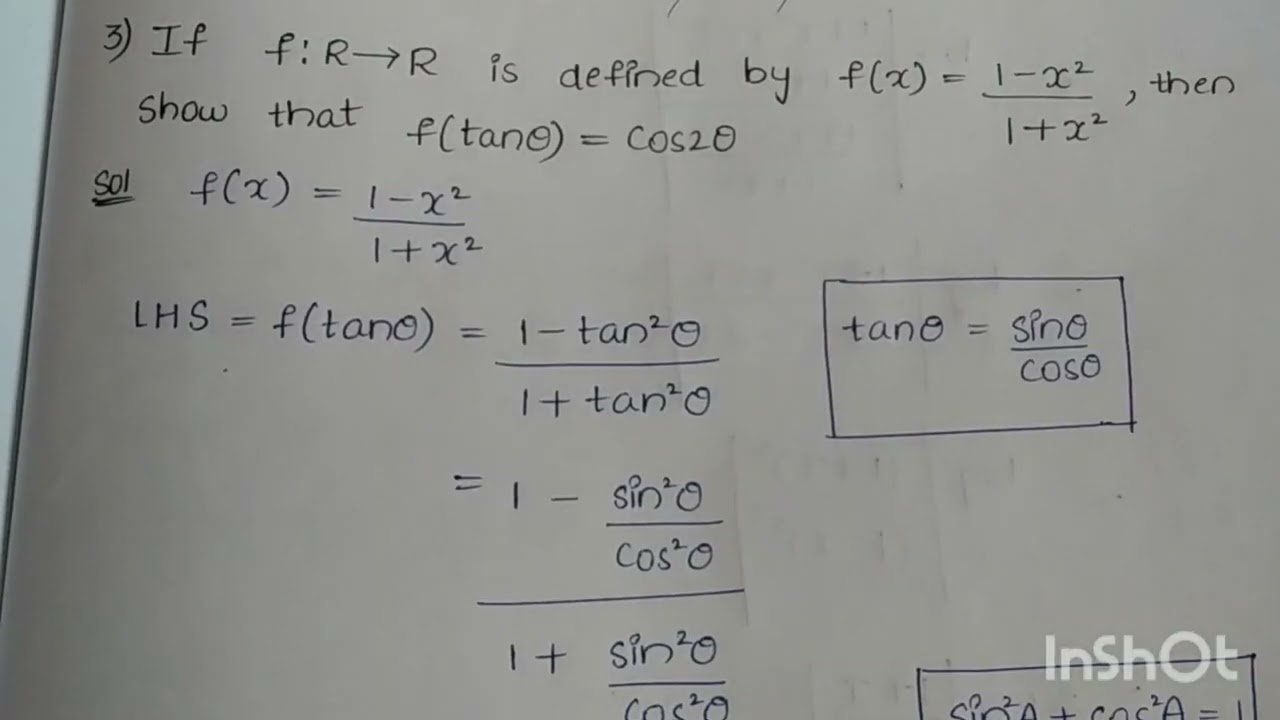 3) If f: R→R is defined by f(x) = 1-x² / 1+x² , then
show that f(tanθ) = cos2θ
Sol f(x) = 1-x² / 1+x²
LHS = f(tanθ) = 1-tan²θ / 1+tan²θ
tanθ = sinθ / cosθ
= 1 - sin²θ / cos²θ
1 + sin²θ / cos²θ
InShOt
sin²A + cos²A = 1